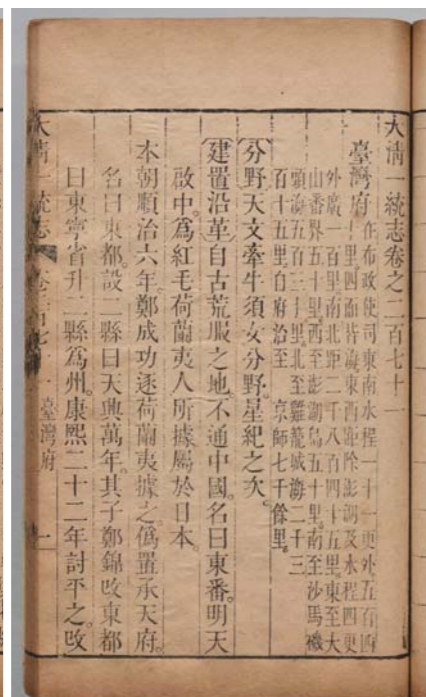 大清一統志卷之二百七十一
臺灣府
在布政使司東南水程一十一更外五百四
十里四面皆海東西距除澎湖及水程四更
外廣一百里南北距二千八百四十五里東至大
山番界五十里西至澎湖島五十里南至沙馬磯
頭海五百三十里北至雞籠城海二千三
百十五里自府治至 京師七千餘里
分野天文牽牛須女分野星紀之次
建置沿革自古荒服之地不通中國名曰東番明天
啟中為紅毛荷蘭夷人所據屬於日本
本朝順治六年鄭成功逐荷蘭夷據之僞置承天府
名曰東都設二縣曰天興萬年其子鄭錦攺東都
曰東寧省升二縣為州康熙二十二年討平之攺
大清一統志 卷二百七十一 臺灣府 一